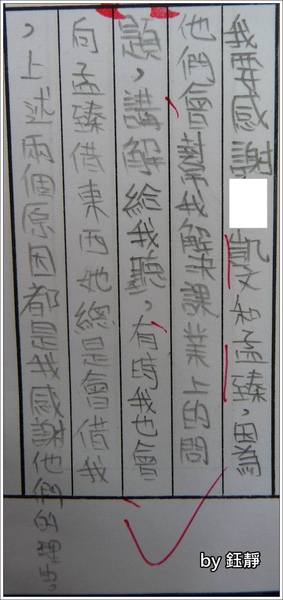 我要感謝凱文和孟臻，因為
他們會幫我解決課業上的問
題，講解給我聽，有時我也會
向孟臻借東西她總是會借我
，上述兩個原因都是我感謝他們的理由。
by 鈺靜